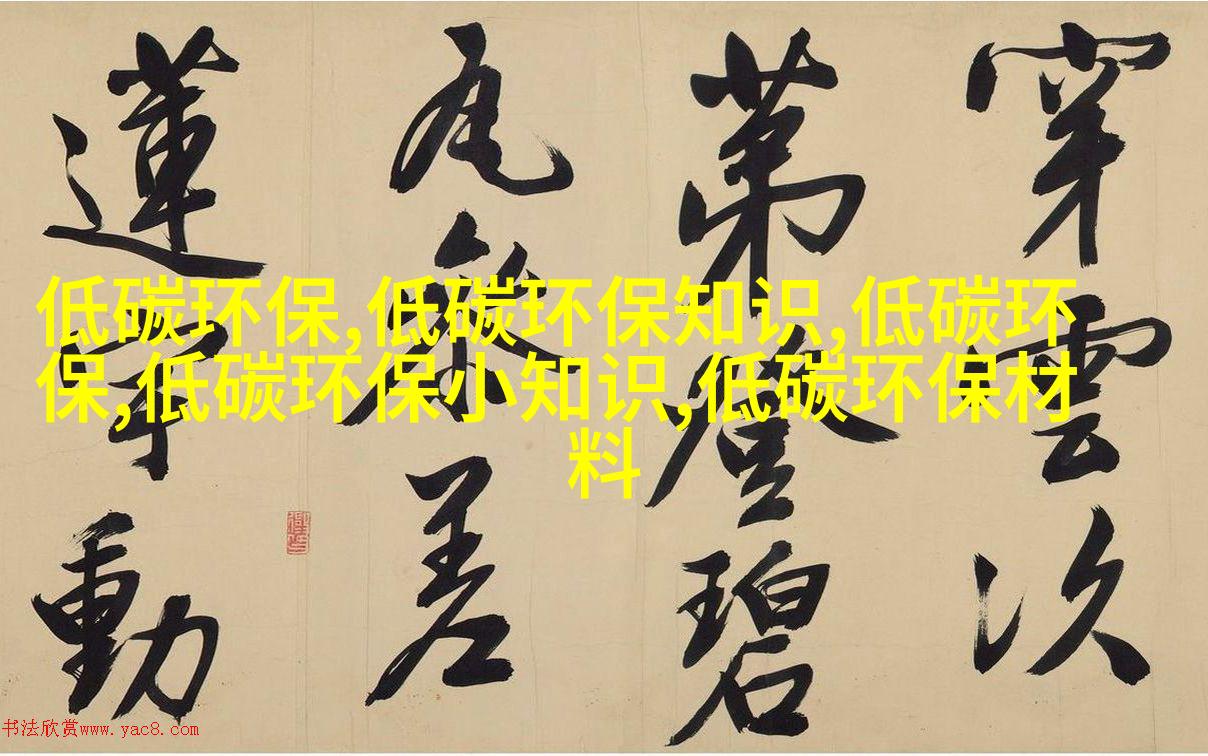 穿雲次
第登碧
瓦參差
蓮宇動
低碳环保,低碳环保知识,低碳环
保,低碳环保小知识,低碳环保材
料
书法欣赏www.yac8.com